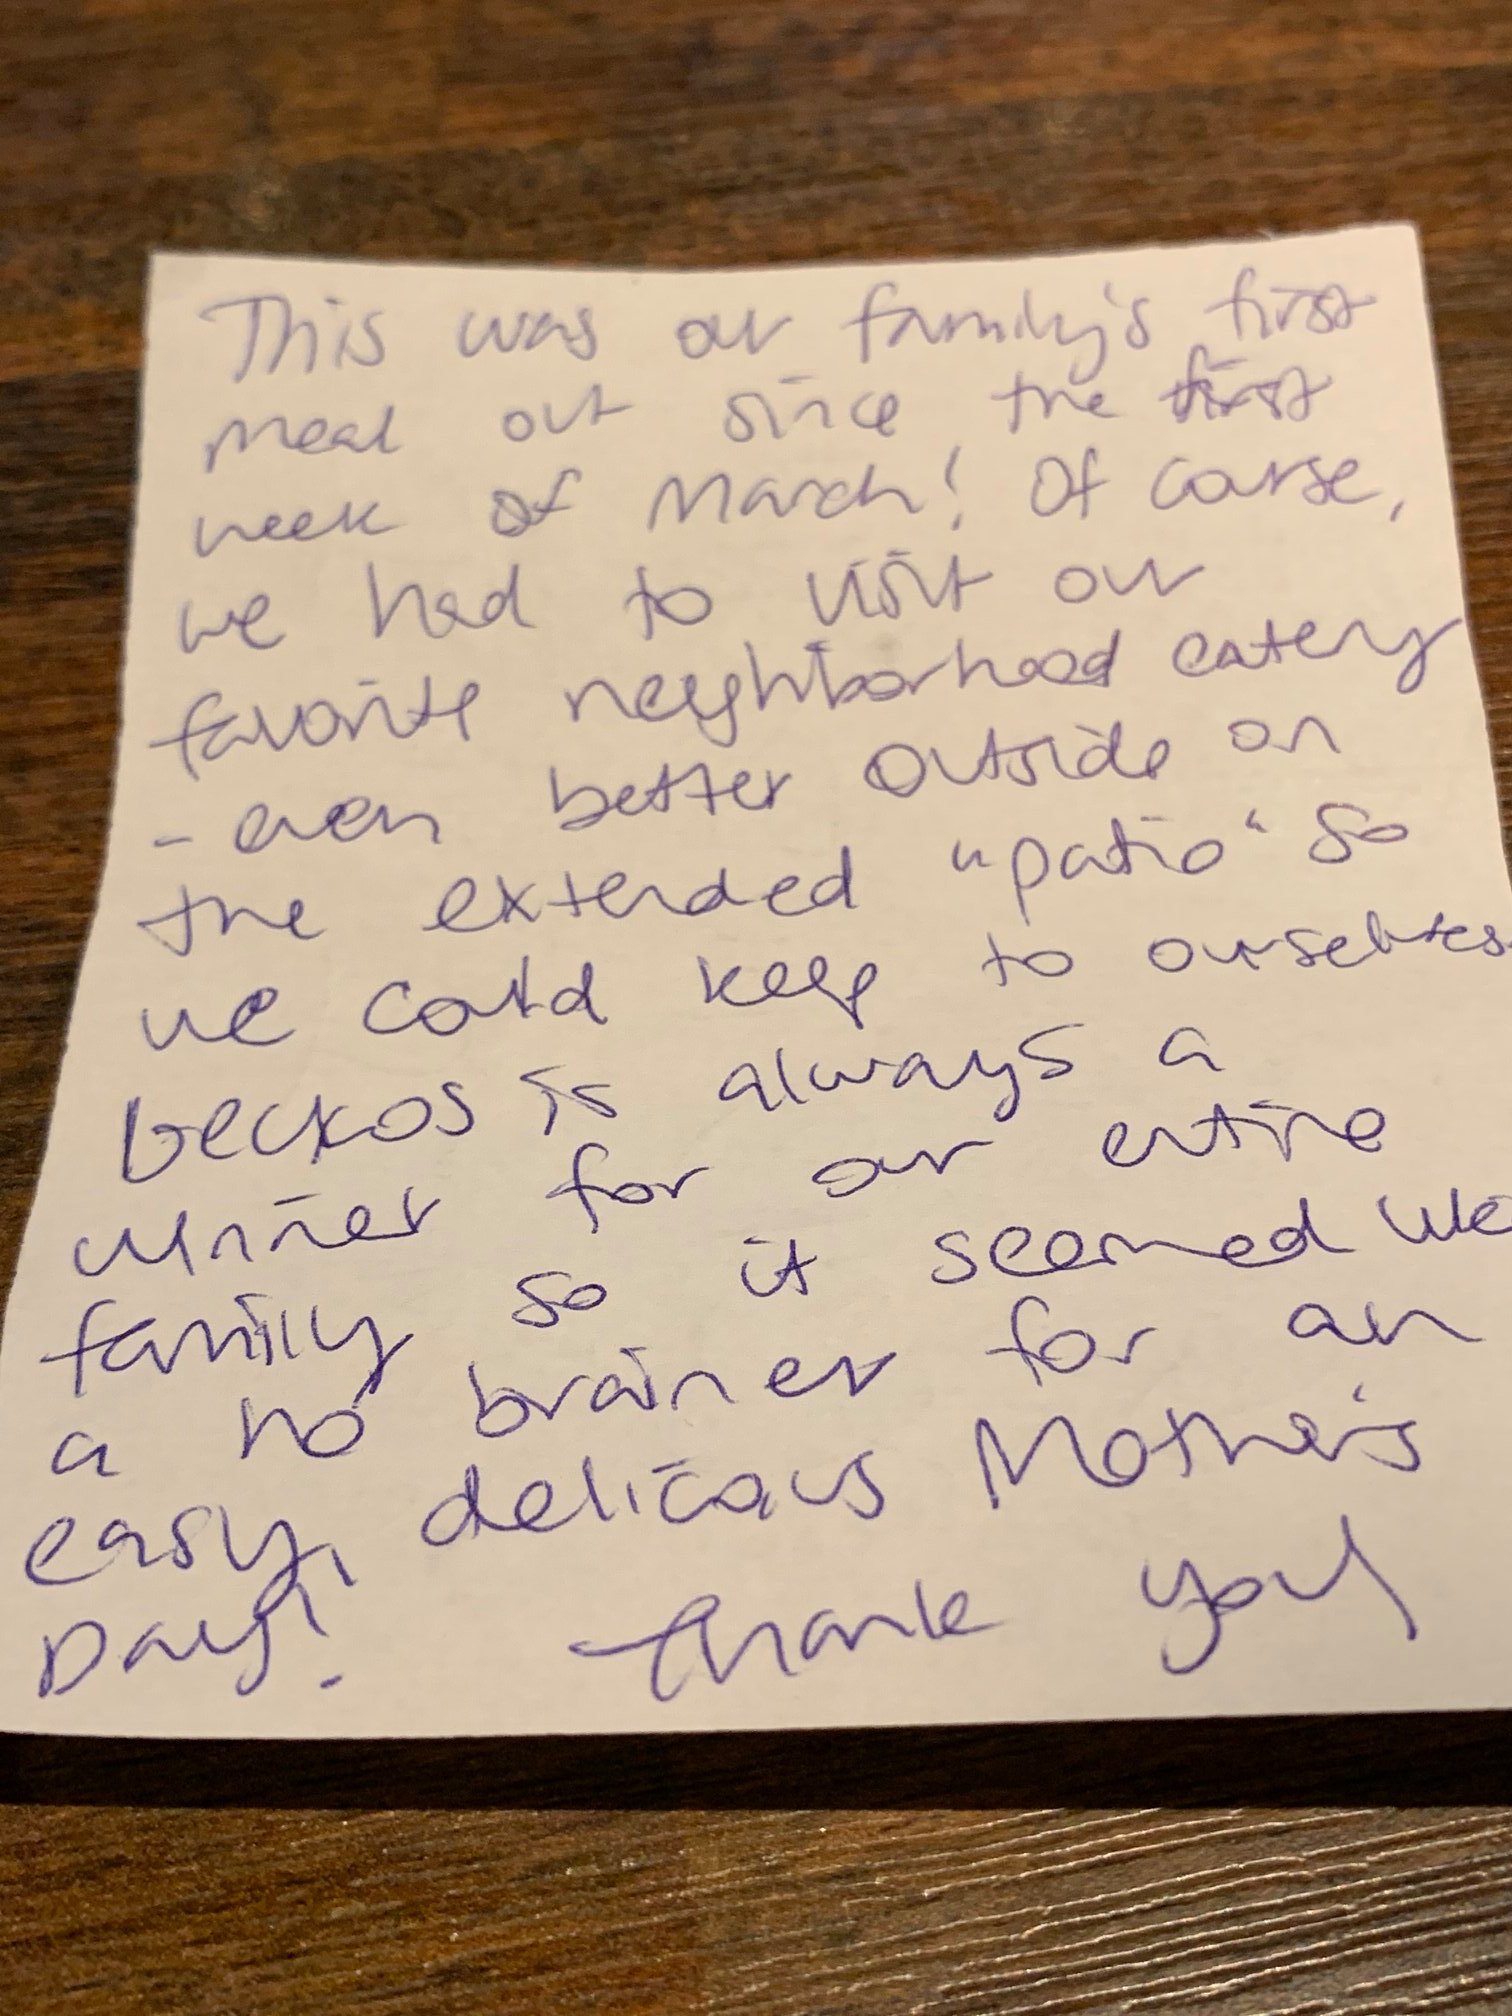 This was our family's first
meal out since the first
week of March! Of course,
we had to visit our
favorite neighborhood eatery
- even better outside on
the extended "patio" so
we could keep to ourselves
Geckos is always a
winner for our entire
family so it seemed like
a no brainer for an
easy, delicious Mother's
Day! Thank you!